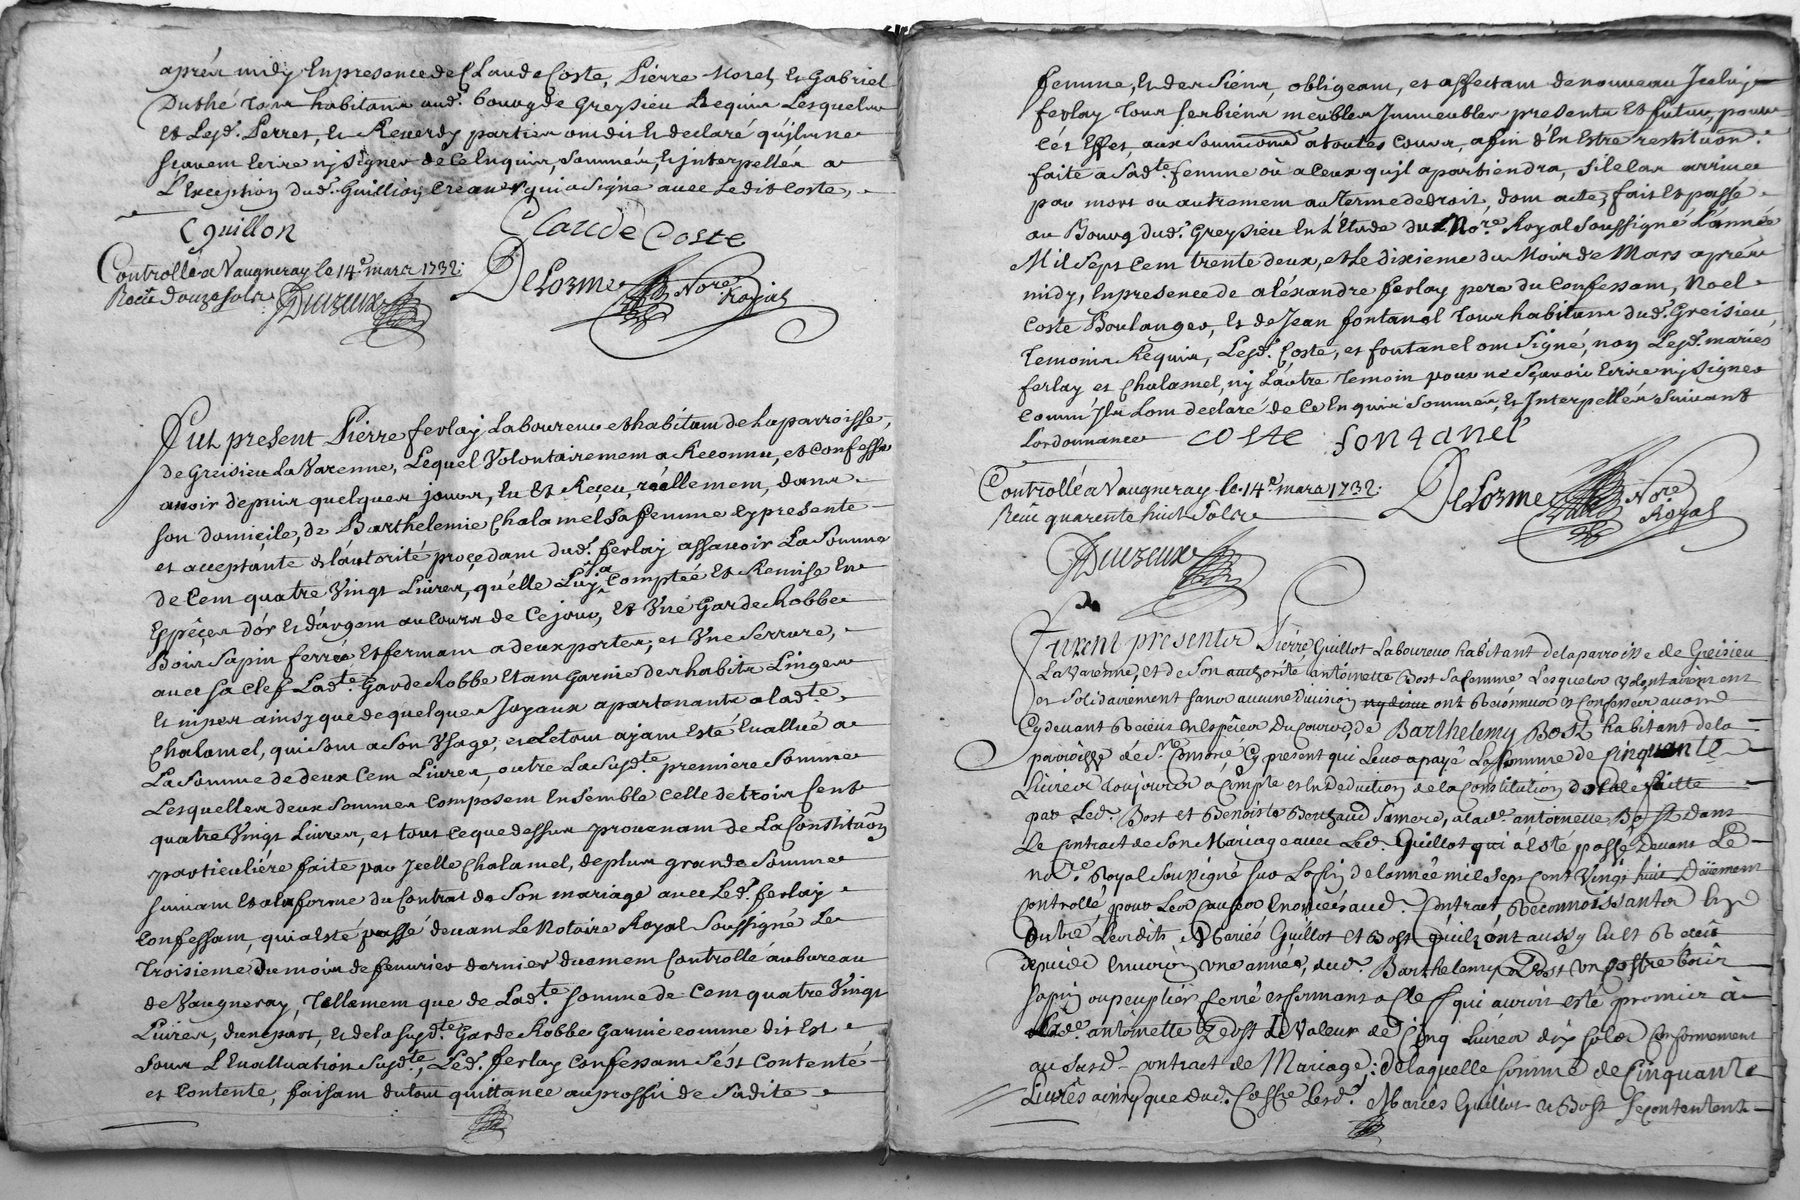 après midy En presence de Claude Coste, Pierre Morel, Et Gabriel
Duthé tous habitans aud.t bourg de Greysieu Requis Lesquels
Et Lesd.s Perret, Et Reverdy parties ont dit Et declaré qu'ils ne
sçavent Ecrire ny signer de ce Enquis, sommés, Et interpellés a
L'Exception dud.t Guillion, qui a signé avec Ledit Coste,
Cguillon
CLaude Coste
Controllé a Vaugneray le 14.e mars 1732.
DeLorme No.re Royal
Receu douze sols
Fut present Pierre ferlay Laboureur et habitant de La parroisse,
de Greisieu La Varenne, Lequel Volontairement a Reconnu, et confessé
avoir depuis quelques jours, Eu Et Reçeu, réellement, dans
son domicile, de Barthelemie Chalamel Sa femme Cy presente
et acceptante de l'autorité procedant dud.t ferlay assavoir La Somme
de Cent quatre Vingt Livres, qu'elle Luy a Comptée Et Remise En
Espêces d'or Et d'argent au Cours de Ce jour, Et Vne Garde Robbe
Bois Sapin ferrée Et fermant a deux portes, et Vne Serrure,
avec sa Clef Lad.te Garde Robbe Etant Garnie des habits Linges
Et nipes ainsy que de quelques Joyaux apartenants a lad.te
Chalamel, qui sont a Son Vsage, et Le tout ayant Esté Evallué a
La Somme de deux Cent Livres, outre La Susd.te premiere Somme
Lesquelles deux Sommes Composent Ensemble Celle de trois Cent
quatre Vingt Livres, et tout ce que dessus provenant de La Constituôn
particuliére faite par Jcelle Chalamel, de plus grande Somme
suivant Et a la forme du Contrat de Son mariage avec Led.t ferlay
Confessant, qui a Esté passé devant Le Notaire Royal Soussigné Le
troisieme du mois de fevrier dernier duement Controllé au bureau
de Vaugneray, tellement que de Lad.te somme de Cent quatre Vingt
Livres, d'une part, Et de la susd.te Garde Robbe Garnie comme dit Est
sous L'Evalluation susd.te, Led.t ferlay Confessant S'est Contenté
et Contente, faisant du tout quittance au proffit de Sadite
femme, Et des Siens, obligeant, et affectant de nouveau Jceluy
ferlay tous ses biens meubles Jmmeubles presents Et futurs, pour
cés Effets, aux Soumions a toutes Cours, afin d'En Estre restitution
faite a Sad.te femme où a Ceux qu'il apartiendra, si le Cas arrive
par mort ou autrement au terme de droit, dont acte, fait Et passé
au Bourg dud.t Greysieu En L'Etude du No.re Royal Soussigné L'année
Mil Sept Cent trente deux, et Le dixieme du Mois de Mars après
midy, En presence de aléxandre ferlay pere du Confessant, Noel
Coste Boulanger, Et de Jean fontanel tous habitans dud.t Greisieu,
Temoins Requis, Lesd.s Coste, et fontanel ont Signé, non Lesd.s mariés
ferlay et Chalamel, ny L'autre temoin pour ne Sçavoir Ecrire ny signer
comm'Jls L'ont declaré de Ce Enquis Sommés, Et Interpellés Suivant
L'ordonnance
coste
fontanel
Controllé a Vaugneray le 14.e mars 1732.
DeLorme No.re Royal
Receu quarente huit Sols
Furent presents Pierre Guillot Laboureur habitant de la parroisse de Greisieu
La Varenne, et de Son authorité antoinette Bost Sa femme Lesquels Volontairement
et Solidairement sans aucune Division ont Reconnus et Confessés avoir
Cy devant Reçeus En Espêces du Cours, de Barthelemy Bost habitant de la
parroisse de Cy present qui Leur a payé La Somme de Cinquante
Livres toujours a Compte et En Deduction de la Constitution faitte
par Led.t Bost et Benoiste Sa mere, a lad.e antoinette Bost dans
Le Contract de Son Mariage avec Led.t Guillot qui a Esté passé Devant Le
No.re Royal Sousigné Sur La fin de l'année mil Sept Cent Vingt huit Deüement
Controllé pour Les Causes Enoncées aud.t Contract, Reconnoissants En
outre Lesdits Mariés Guillot Et Bost qu'ils ont aussy Eu Et Reçeü
depuis Environ vne année, dud.t Barthelemy Bost vn Coffre bois
Sapin ou peuplier ferré et fermant a Clef qui auroit esté promis à
lad.e antoinette Bost de Valeur de Cinq Livres dix sols Conformement
au Susd.t Contract de Mariage: de laquelle Somme de Cinquante
Livres ainsy que dud.t Coffre Lesd.s Mariés Guillot et Bost Se contentent